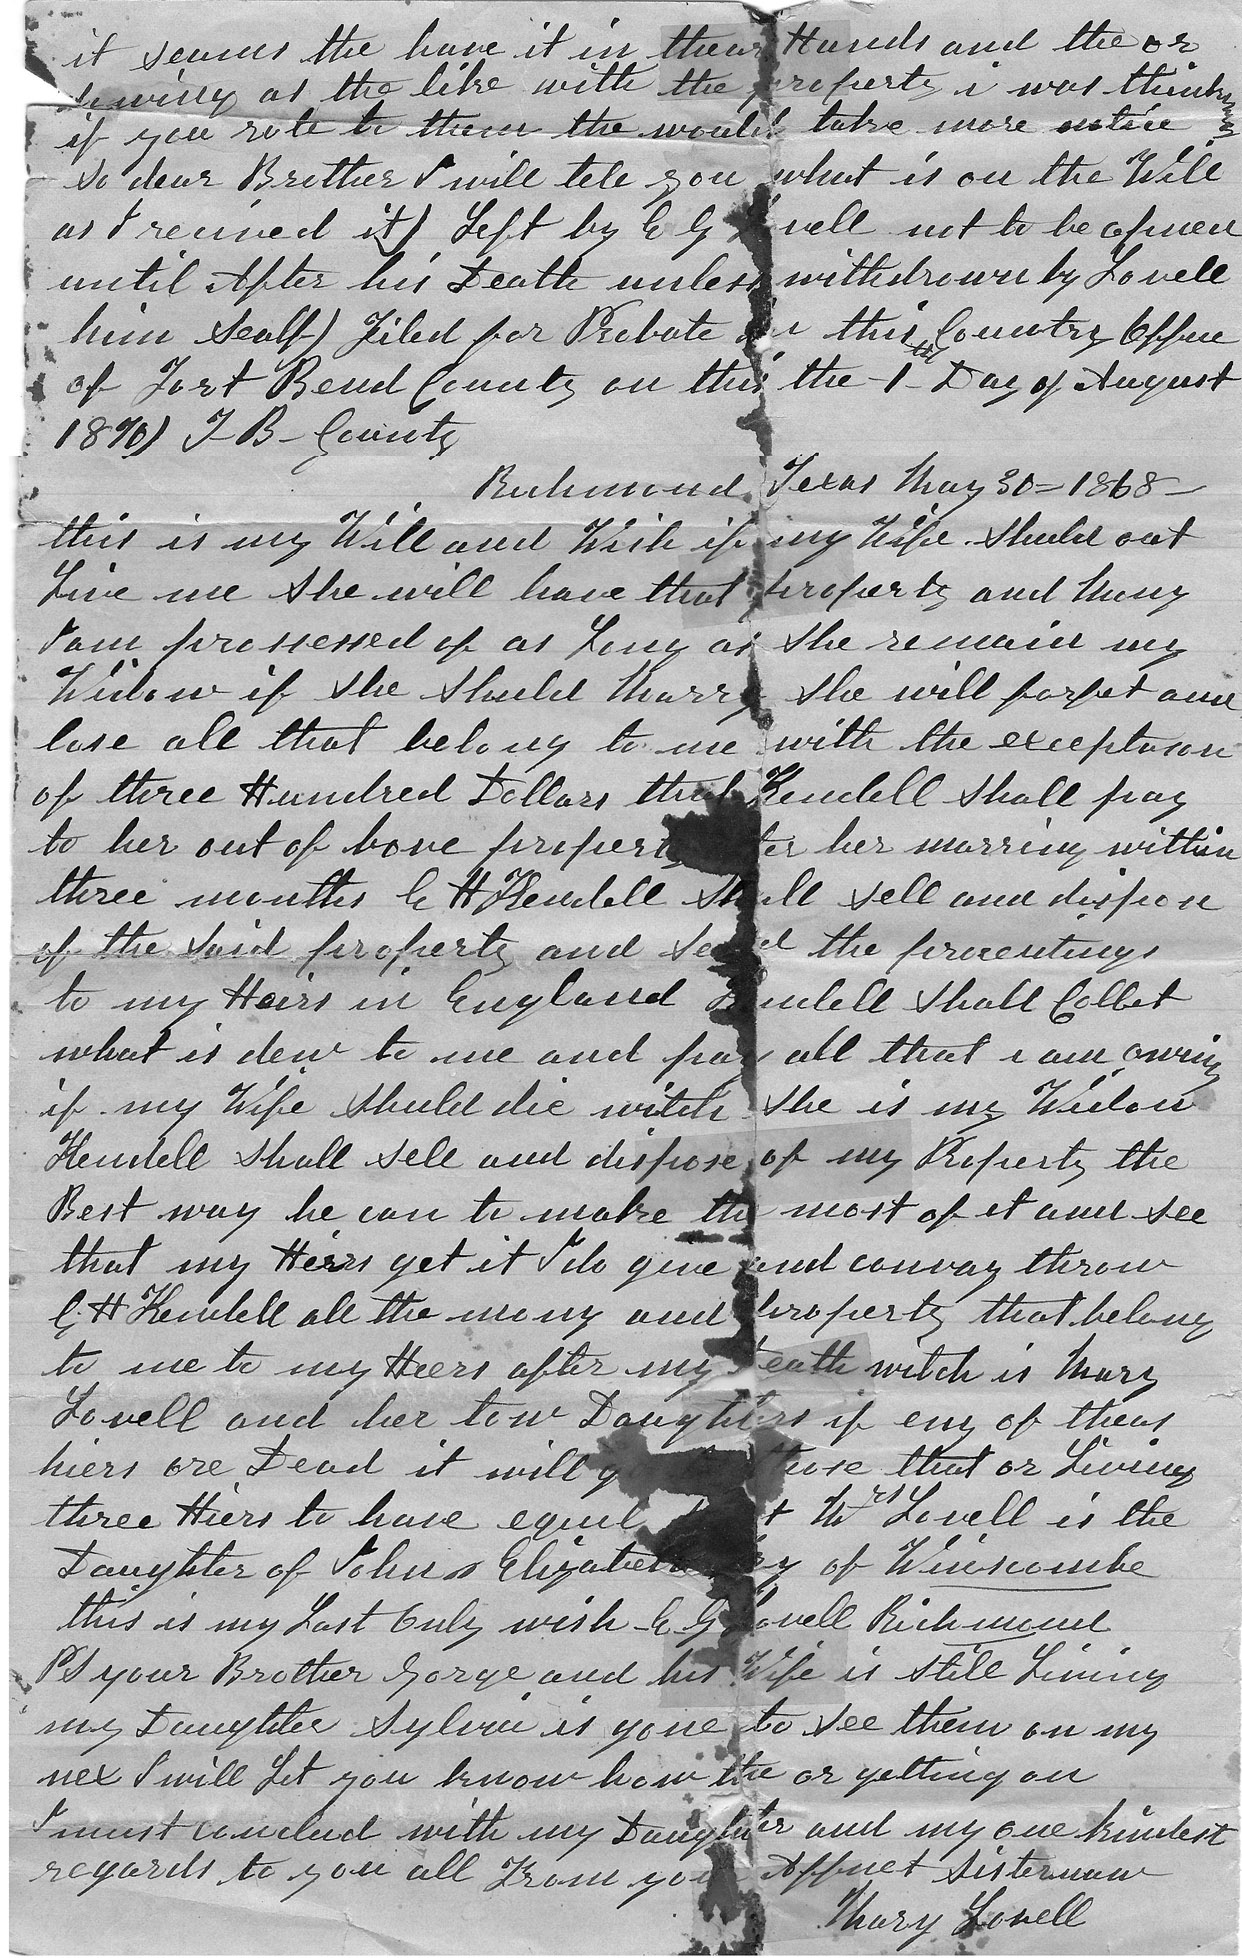 it seems the have it in thear Hands and the or
as the like with the property i was thinking
if you rote to them the would take more notice
So dear Brother I will tele you what is on the Will
as I recived it) Left by E G Lovell not to be opnen
until After his Death unless withdrown by Lovell
him Sealf) Filed for Probate in this Country Offue
of Fort Bend County on this the 1st Day of August
1870) F B County
Richmond Texas May 30 - 1868 -
this is my Will and Wish if my Wife Should out
Live me She will have that property and Mony
I am prossessed of as Long as She remain my
Widow if She Should Marry She will forfet and
lose all that belong to me with the exceptuson
of three Hundred Dollars that Kendell Shall pay
to her out of bove property after her marring within
three months E H Kendell Shall Sell and dispose
of the Said property and Send the proceutings
to my Heirs in England Kendell Shall Collet
what is dew to me and pay all that i am owing
if my Wife Should die witch She is my Widow
Kendell Shall Sell and dispose of my Properts the
Best way he can to make the most of it and See
that my Heirs get it I do give and convay throw
E H Kendell all the mony and property that belong
to me to my Heers after my Death witch is Mary
Lovell and her tow Daughters if eny of theas
hiers ore Dead it will go to those that or Living
three Hiers to have equel Mrs Lovell is the
Daughter of John & Elizabeth of Winscombe
this is my Last Only wish E G Lovell Richmond
PS your Brother Gorge and his Wife is still Living
my Daughter Sylvia is gone to See them on my
nex I will Let you know how the or getting on
I must conclud with my Daughter and my one kindest
regards to you all From your Affnet Sisternaw
Mary Lovell